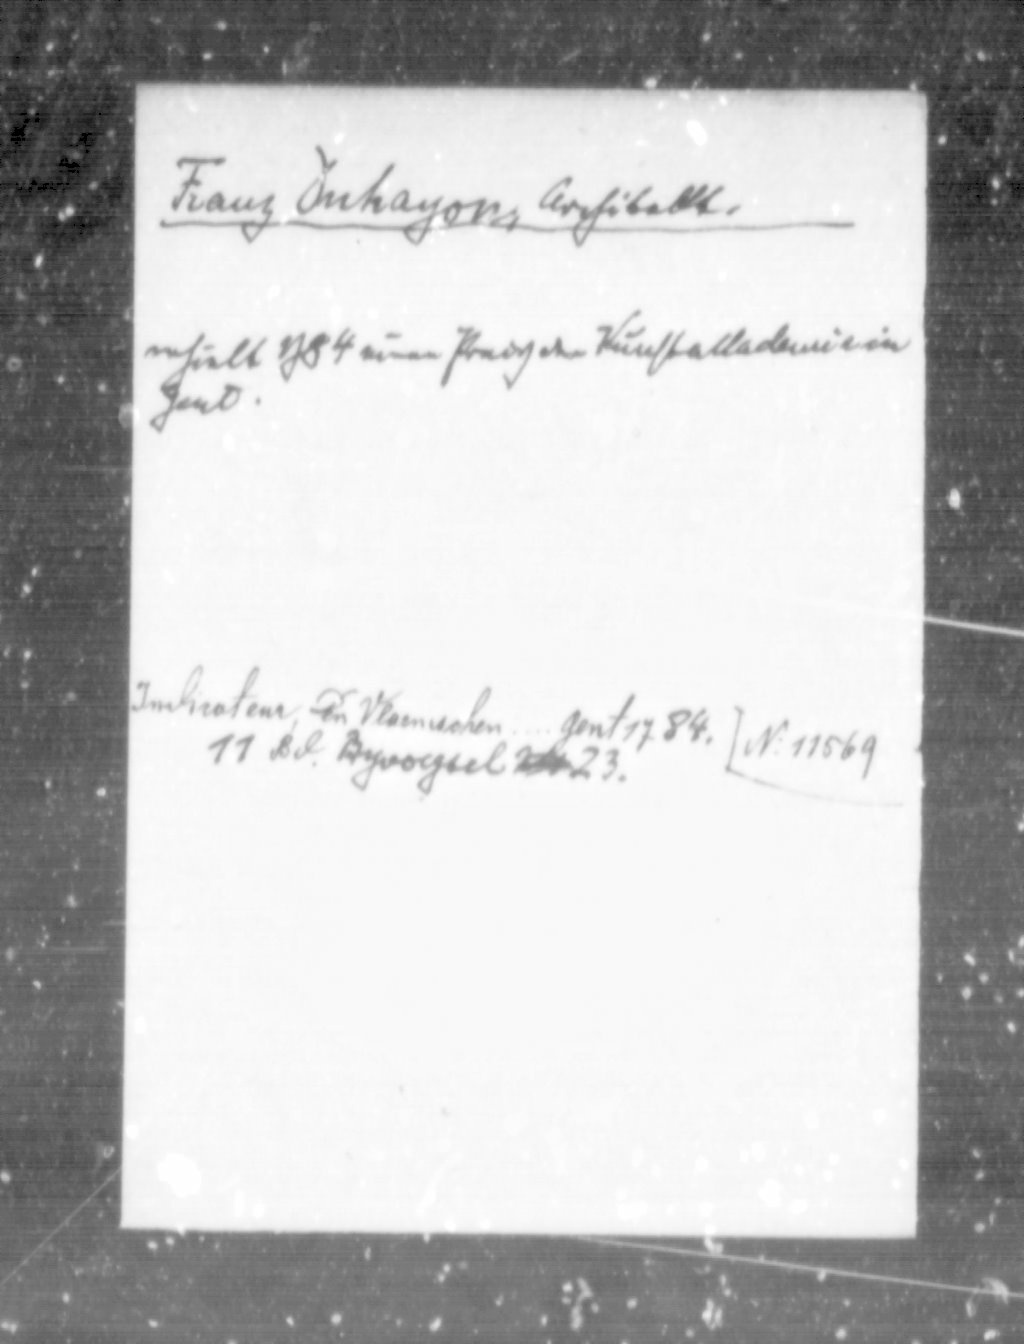 Franz Inkayon, Architekt.
erhielt 1784 einen Preis der Kunstakademie in
Gent.
Indicateur, Den Vlaemschen .... Gent 1784.
11 Bd. Byvoegsel 23. [N: 11569